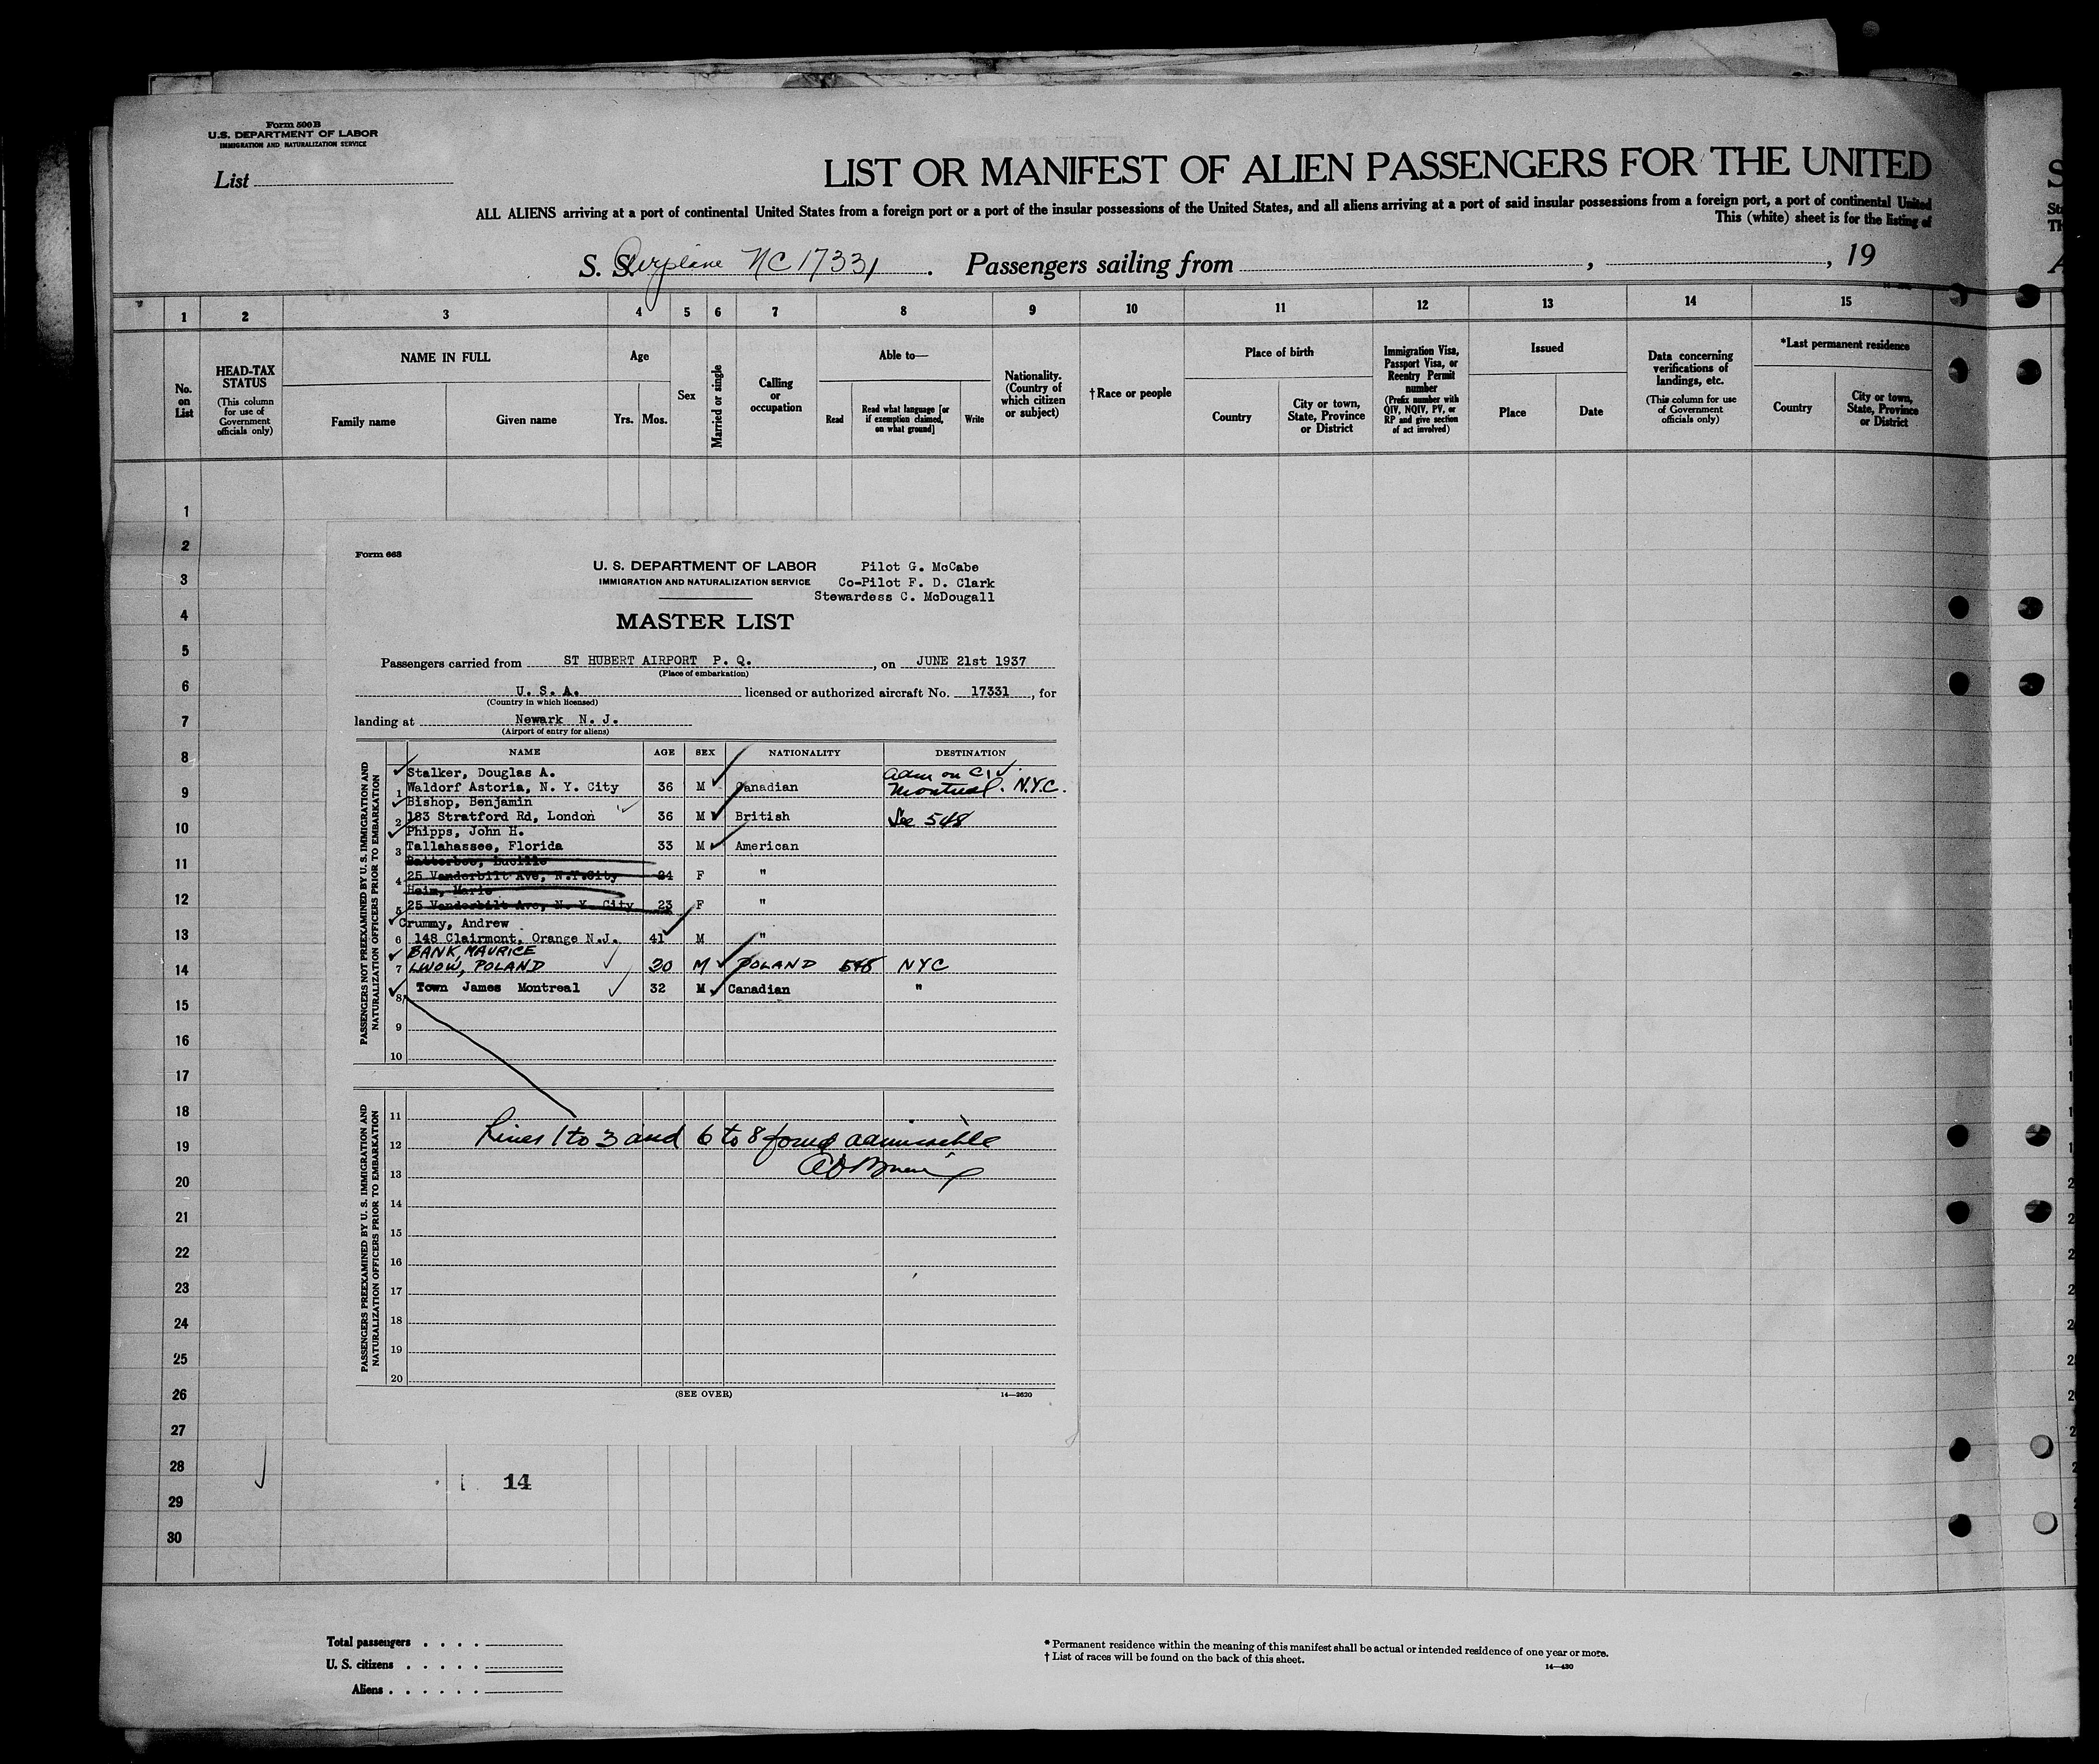 Form 500 B
U.S. DEPARTMENT OF LABOR
IMMIGRATION AND NATURALIZATION SERVICE
List
LIST OR MANIFEST OF ALIEN PASSENGERS FOR THE UNITED
ALL ALIENS arriving at a port of continental United States from a foreign port or a port of the insular possessions of the United States, and all aliens arriving at a port of said insular possessions from a foreign port, a port of continental United
This (white) sheet is for the listing of
S. S. Airplane NC 17331. Passengers sailing from , , 19
1 2 3 4 5 6 7 8 9 10 11 12 13 14 15
No. on List
HEAD-TAX STATUS (This column for use of Government officials only)
NAME IN FULL
Family name Given name
Age
Yrs. Mos.
Sex
Married or single
Calling or occupation
Able to—
Read
Read what language [or if exemption claimed, on what ground]
Write
Nationality. (Country of which citizen or subject)
†Race or people
Place of birth
Country
City or town, State, Province or District
Immigration Visa, Passport Visa, or Reentry Permit number (Prefix number with QIV, NQIV, PV, or RP and give section of act involved)
Issued
Place Date
Data concerning verifications of landings, etc. (This column for use of Government officials only)
*Last permanent residence
Country
City or town, State, Province or District
1
2
3
4
5
6
7
8
9
10
11
12
13
14
15
16
17
18
19
20
21
22
23
24
25
26
27
28
29
30
Form 663
U. S. DEPARTMENT OF LABOR Pilot G. McCabe
IMMIGRATION AND NATURALIZATION SERVICE Co-Pilot F. D. Clark
Stewardess C. McDougall
MASTER LIST
Passengers carried from ST HUBERT AIRPORT P. Q. , on JUNE 21st 1937
(Place of embarkation)
U. S. A. licensed or authorized aircraft No. 17331 , for
(Country in which licensed)
landing at Newark N. J.
(Airport of entry for aliens)
PASSENGERS NOT PREEXAMINED BY U. S. IMMIGRATION AND NATURALIZATION OFFICERS PRIOR TO EMBARKATION
NAME AGE SEX NATIONALITY DESTINATION
Stalker, Douglas A. Adm on C I
1 Waldorf Astoria, N. Y. City 36 M Canadian Montreal. N.Y.C.
Bishop, Benjamin
2 183 Stratford Rd, London 36 M British See 548
Phipps, John H.
3 Tallahassee, Florida 33 M American
Lucille
4 25 Vanderbilt Ave, N.Y.City 24 F "
Heim, Marie
5 25 Vanderbilt Ave, N. Y. City 23 F "
Crummy, Andrew
6 148 Clairmont, Orange N.J. 41 M "
BANK, MAURICE
7 LWOW, POLAND 30 M POLAND 548 NYC
8 Town James Montreal 32 M Canadian "
9
10
PASSENGERS PREEXAMINED BY U. S. IMMIGRATION AND NATURALIZATION OFFICERS PRIOR TO EMBARKATION
11
12 Lines 1 to 3 and 6 to 8 found admissible
13
14
15
16
17
18
19
20
(SEE OVER) 14—2620
14
Total passengers
U. S. citizens
Aliens
* Permanent residence within the meaning of this manifest shall be actual or intended residence of one year or more.
† List of races will be found on the back of this sheet.
14—430